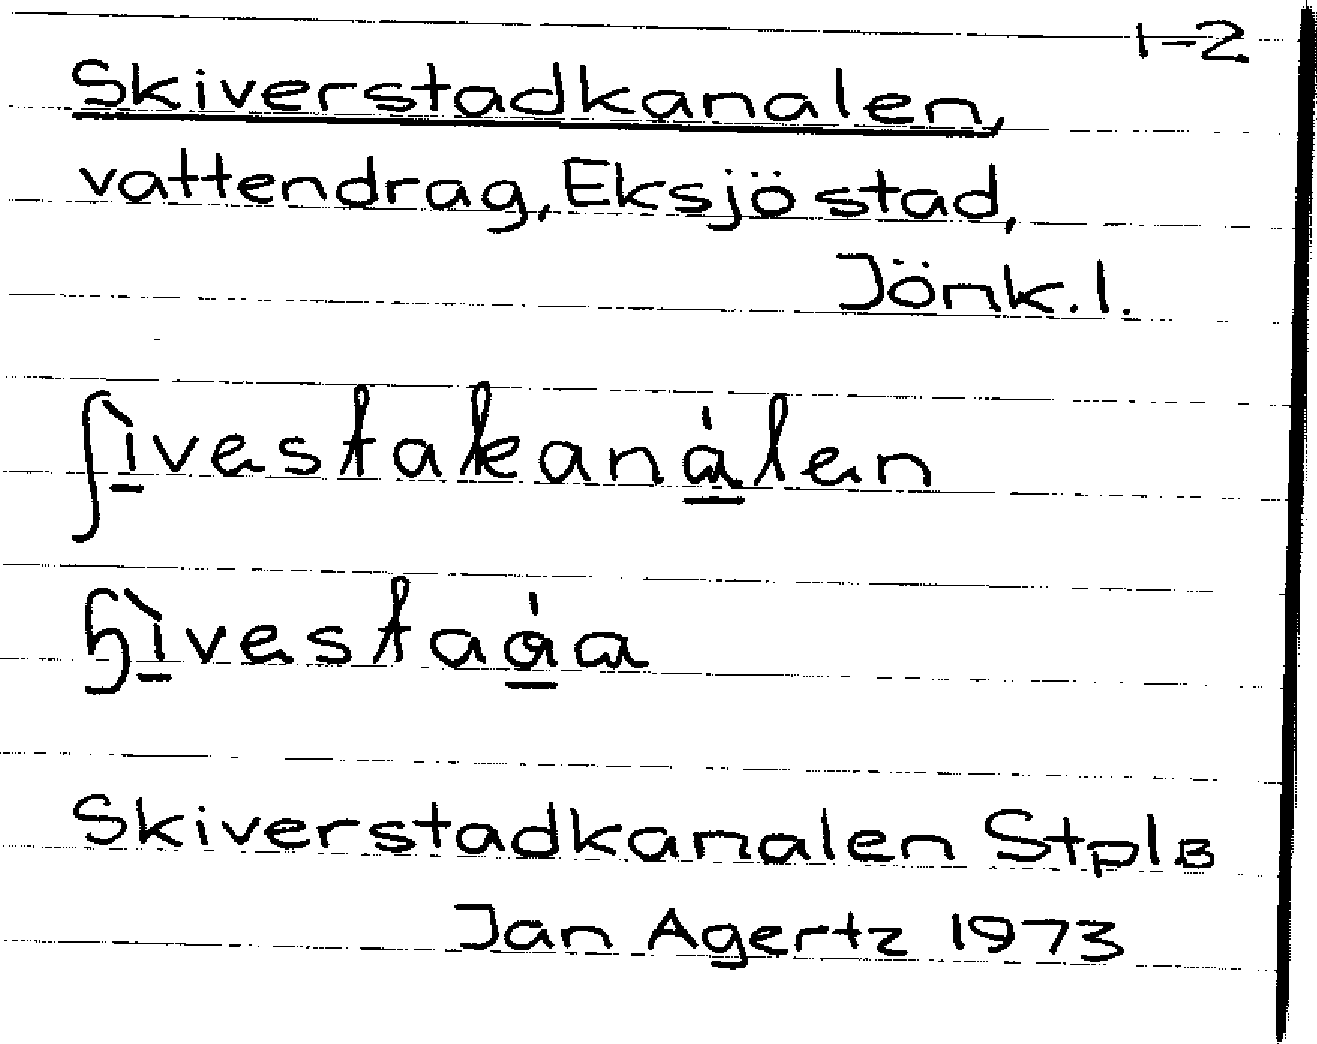 1-2
Skiverstadkanalen,
vattendrag, Eksjö stad,
Jönk. l.
ʃìvestakanálen
ɧìvestaáa
Skiverstadkanalen Stpl B
Jan Agertz 1973